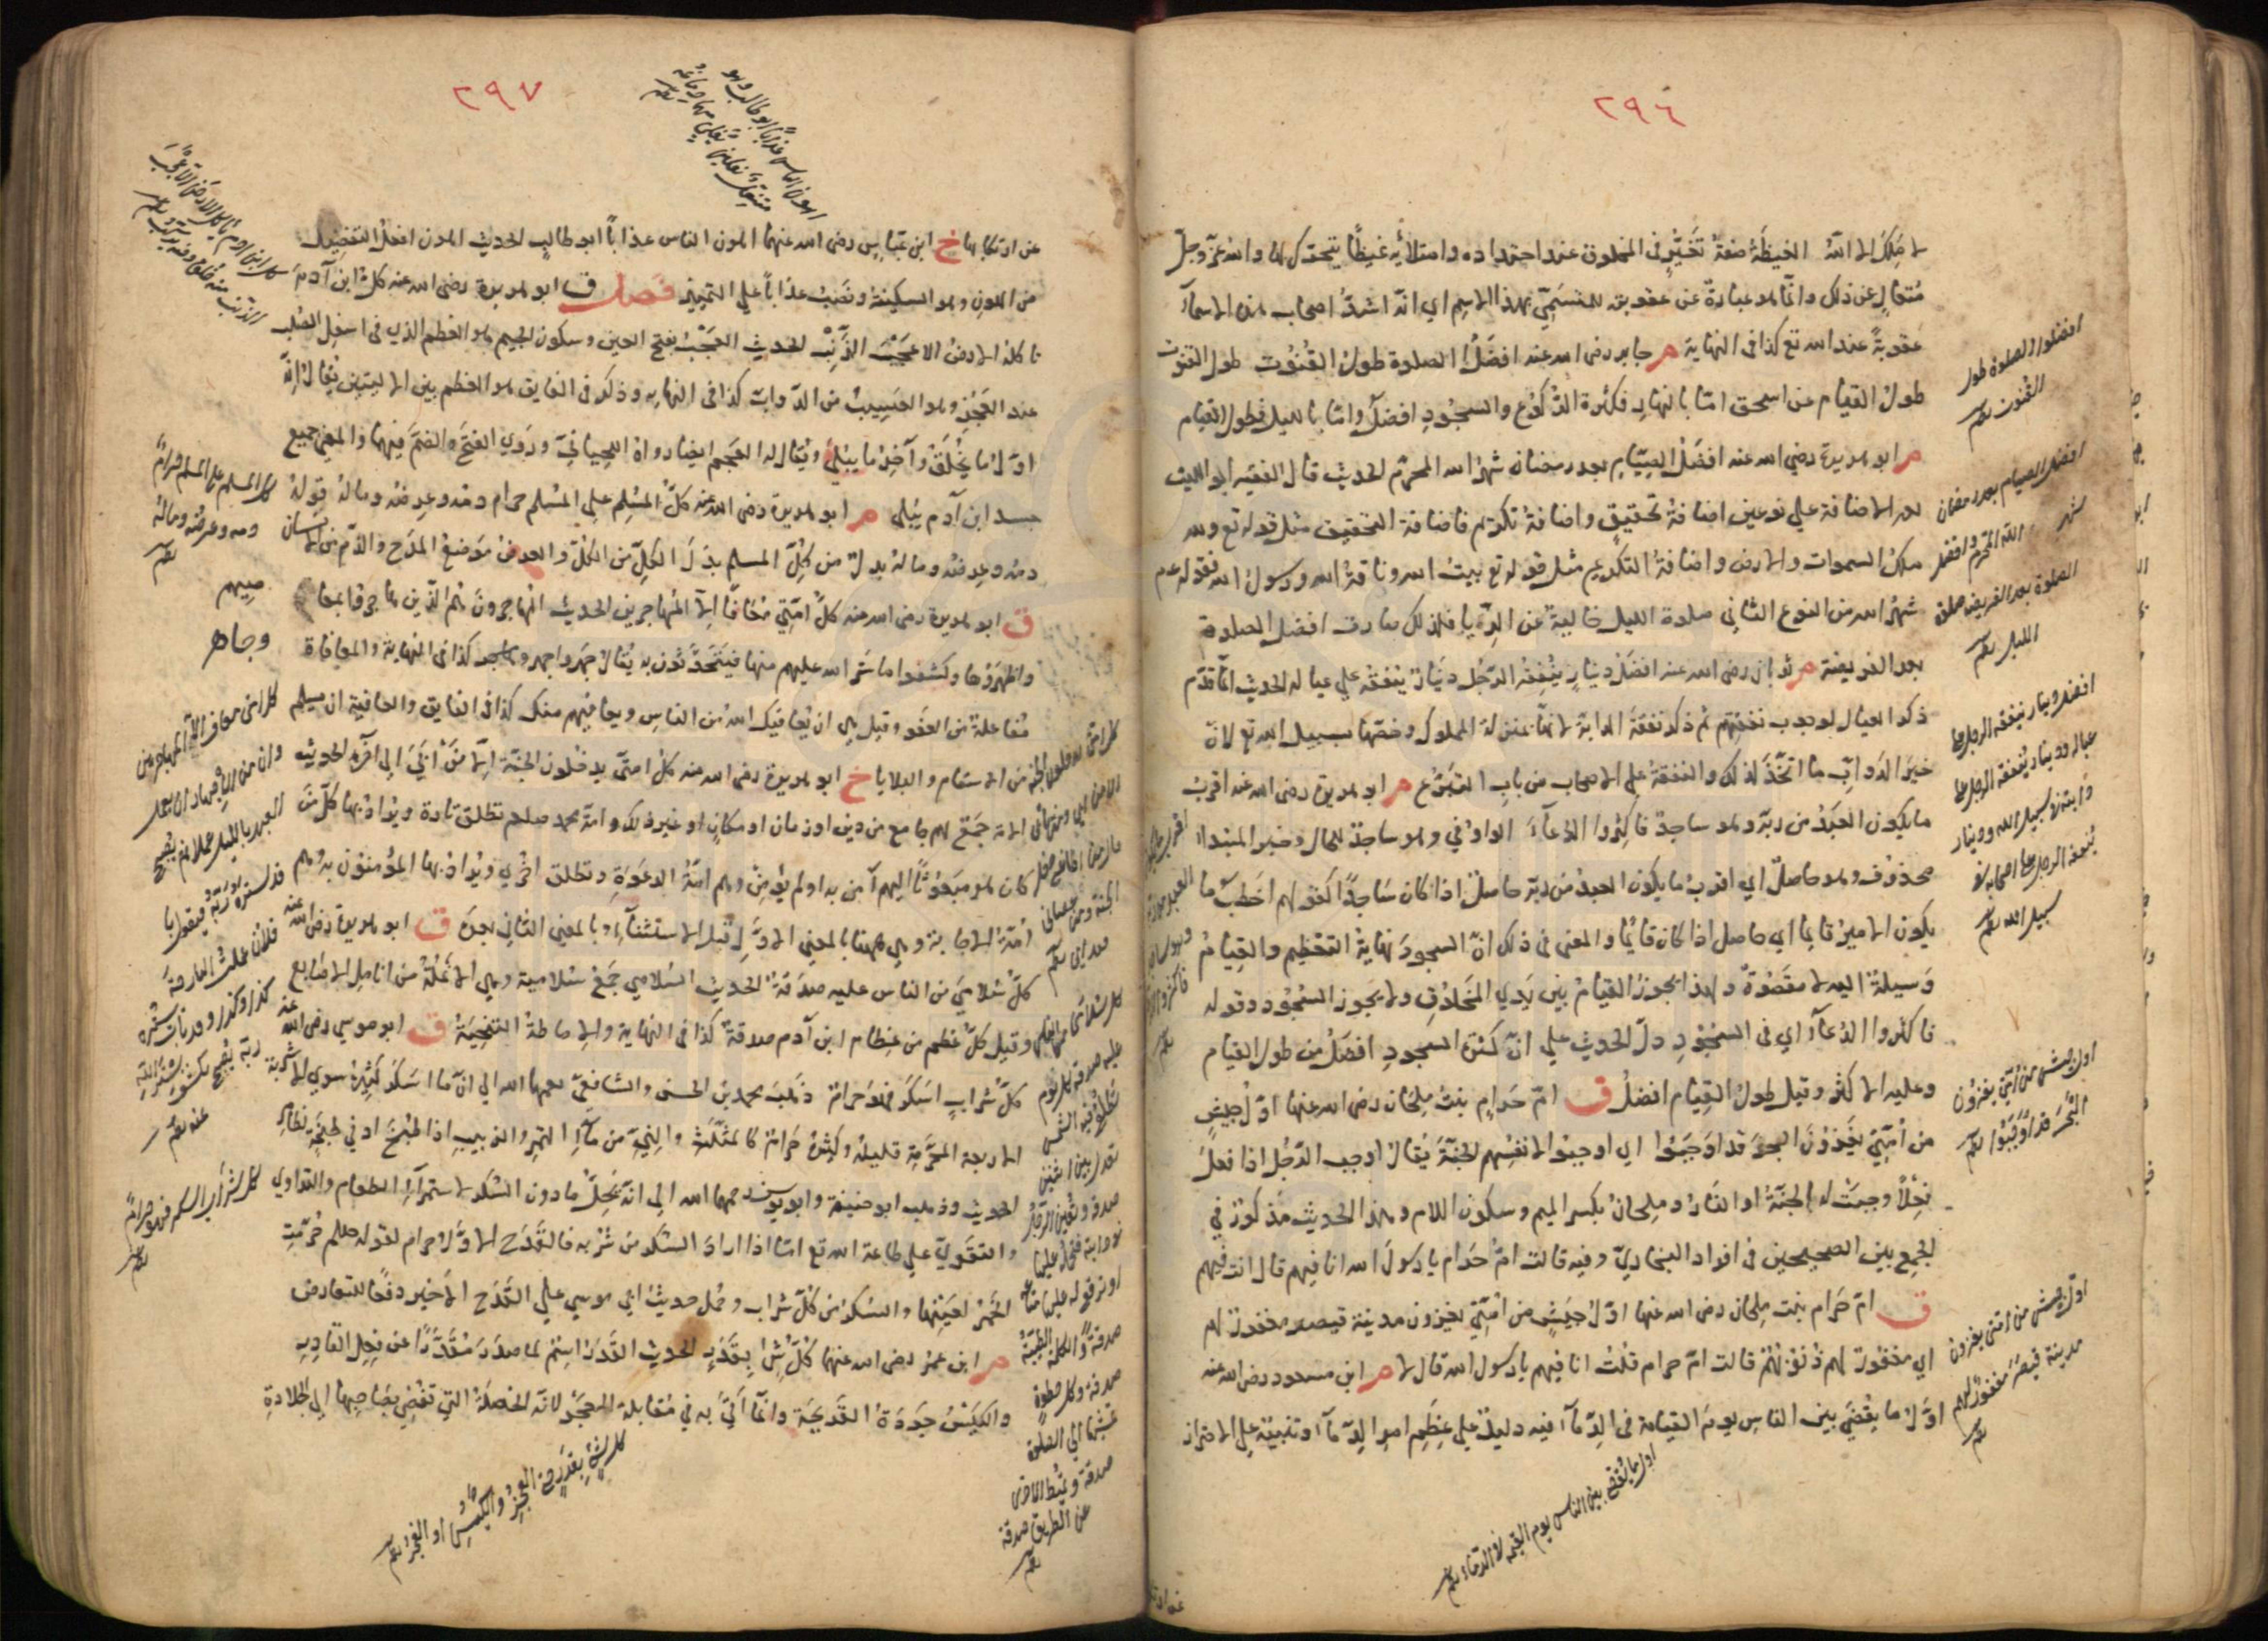 ٢٩٦
لا مَلِكَ الا اللّٰه الغيظة صفةُ تَغَيُّرٍ في المخلوق عند احتداده وامتلائه غيظًا يتحرك لها والله عزّ وجلّ
مُتعالٍ عن ذلك وانّما هو عبارةٌ عن عقوبته للمتسمّي بهذا الاسم اي انّه اشدّ اصحاب هذه الاسمآء
عقوبةً عند الله تع كذا في النهاية م جابر رضى الله عنه افضَلُ الصلوة طولُ القُنُوت طول القنوت
طولُ القيام عن اسحق امّا بالنهار فكثرة الرُّكوع والسجُودِ افضلُ وامّا بالليل فطول القيام
م ابو هريرة رضي الله عنه افضَلُ الصِّيام بعد رمضان شهرُ الله المحرّم الحديث قال الفقيه ابو الليث
الاضافة على نوعين اضافةُ تحقيقٍ واضافةُ تكريم فاضافة التحقيق مثل قوله تع ولله
ملك السموات والارض واضافةُ التكريم مثل قوله تع بيت الله وناقةُ الله ورسولُ الله فقوله عم
شهرُ الله من النوع الثاني صلوة الليل خالية عن الرِّياء فلذلك صارت افضل الصلوة
بعد الفريضة م ثوبان رضى الله عنه افضَلُ دينارٍ يُنفِقُه الرّجُل دينارٌ ينفقه على عياله الحديث انّما قدّم
ذكر العيال لوجوب نفقتهم ثم ذكر نفقةَ الدابة لانّها بمنزلة المملوك وخصّها بسبيل الله تع لانّ
خيرَ الدَّوابِّ ما اتّخذَ لذلك والنفقةُ على الاصحاب من بابِ التبرّع م ابو هريرة رضى الله عنه اقربُ
ما يكون العَبدُ من ربّه وهو ساجدٌ فاكثِروا الدُّعآءَ الواوُ في وهو ساجدٌ للحال وخبر المبتدا
محذوفٌ وهو حاصلٌ اي اقربُ ما يكون العبدُ من ربّه حاصلٌ اذا كان سَاجدًا كقولهم اخَطبُ ما
يكون الاميرُ قايما اي حاصل اذا كان قايمًا والمعنى في ذلك انّ السجودَ نهايةُ التعْظيم والقِيامُ
وَسيلةٌ اليه لا مقصودٌ ولهذا يجوزُ القيامُ بينَ يَدي المخلوقِ ولا يجوز السُّجُود وقوله
فاكثروا الدُّعآءَ اي في السُّجُودِ دلّ الحديث على انّ كثرة السجودِ افضَلُ من طول القيام
وعليه الاكثر وقيل طولُ القِيام افضلُ ق امّ حَرامٍ بنتُ مِلحَان رضى الله عنها اوّلُ جيشٍ
من أمّتي يَغزُونَ البحرَ قد اوجَبُوا اي اوجبُوا لانفُسِهم الجنّةَ يُقال اوجب الرّجُل اذا فعلَ
فعْلًا وجبَتْ له الجنّةُ او النّارُ ومِلحانُ بكسر الميم وسكون اللام وهذا الحديث مذكورٌ في
الجمع بين الصحيحين في افراد البخاريّ وفيه قالت امُّ حَرام يا رسولَ الله انا فيهم قال انت فيهم
ق امّ حَرام بنت مِلحان رضى الله عنها اوّل جَيشٍ من امّتي يغزون مدينة قيصر مغفورٌ لهم
اي مغفورٌ لهم ذُنوبُهُمْ قالت امّ حرام قلتُ انا فيهم يا رسول الله قال لا م ابن مسعود رضى الله عنه
اوّلُ ما يُقضَى بينَ الناسِ يومَ القيامة في الدِّمآء فيه دليلٌ على عِظَمِ امرِ الدِّمآء وتنبيهٌ على الاحتراز
افضل الصلوة طول
القُنوت
افضل الصيام بعد رمضان
شهر الله المحرّم وافضل
الصلوة بعد الفريضة صلوة
الليل
افضل دينار ينفقه الرجل على
عياله ودينار ينفقه الرجل على
دابته في سبيل الله ودينار
يُنفقه الرجل على اصحابه في
سبيل الله
اول جيش من امّتي يغزُون
البَحْرَ قد اَوْجَبُوا
اوّل جيش من امتى يغزون
مدينة قيصرَ مغفورٌ لهم
اول ما يُقضى بين الناس يوم القيمة في الدّماء
٢٩٧
اهون الناس عذابًا ابو طالب وهو
منتعلٌ بنعلين يغلى منهما دماغُه
عن ارتكابها خ ابن عبّاسٍ رضى الله عنهما اهون الناس عذاباً ابو طالبٍ الحديث اهون افعلُ التفضِيل
من الهونِ وهو السكينة ونصَبُ عذاباً على التمييز فصل ق ابو هريرة رضى الله عنه كلُّ ابن آدمَ
تاكلهُ الارضُ الا عَجْبَ الذَّنَب الحديث العَجْبُ بفتح العين وسكون الجيم هو العظم الذي في اسفل الصُلب
عند العَجُزِ وهو العَسِيبُ من الدّوابّ كذا في النهايه وذكر في الفايق هو العظم بين الاليتين يُقالُ انّه
اوّلُ ما يُخلَقُ وآخرُ ما يبلَى ويُقال له العَجم ايضا رواهُ اللِّحيانيّ ورُوي الفتحُ والضمّ فيهما والمعنى جميع
جسد ابن آدم يَبلى م ابو هريرة رضى الله عنه كلُّ المُسْلِم على المُسْلم حرام دمُه وعِرضُه ومالُه قولهُ
دمُه وعِرضُه ومالُه بدلٌ من كُلِّ المسلم بدَلَ الكلِّ من الكلّ والعِرضُ مَوضعُ المدَح والذّم من الانسان
ق ابو هريرة رضى الله عنه كلُّ امّتي مُعَافًا الاّ المُجاهرين الحديث
واظهرَوها وكشفوا ما سَتر الله عليهم منها فيتحدّثون به يُقالُ جهَر واجهر كذا في النهاية والمعافاة
مُفاعلةٌ من العَفو وقيل هي ان يُعافيك اللهُ من الناسِ ويعافيهم منك كذا في الفايق والعافية ان يسلم
من الاسقام والبلايا خ ابو هريرة رضى الله عنه كلُّ امتى يدخلون الجنّة الّا مَنْ اَبَى الى آخره الحديث
الامة جمَعٌ لهم جامع من دين او زمان او مكانٍ او غير ذلك وامّة محمد صلعم تطلق تارة ويُرادُ بها كلُّ مَن
كان هو مبعُوثًا اليهم آمن به او لم يؤمِنْ وهم امّةُ الدعوَةِ وتطلق اخرى ويُرادُ بها المؤمنون به وهم
امّةُ الاجابة وهي ههنا بالمعنى الاوّل قبل الاستثنآءِ وبالمعنى الثاني بعدَه ق ابو هريرة رضى الله عنه
كلُّ سُلامَى من الناس عليه صدَقةٌ الحديث السُلامى جَمعُ سُلامية وهي الانمُلَةُ من انامل الاصَابع
وقيل كلُّ عظم من عِظام ابن آدم صدقةٌ كذا في النهاية والاماطةُ التنحيَةُ ق ابو موسى رضى الله عنه
كلُّ شرابٍ اسكرَ فهو حرامٌ ذهَبَ محمد بن الحسن والشافعيّ رحمهما الله الى انّ ما اسكرَ كثيرُهُ سوى الاشربة
الاربعة المحرَّمةِ قليلهُ وكثيرهُ حَرامٌ كالمثلَّث والنيّءِ من مآء التمر والزبيبِ اذا طُبخ ادنى طبخَةٍ
الحديث وذهب ابو حنيفة وابو يوسف رحمهما الله الى انّه يَحِلُّ ما دون السُّكرِ لاستمرآءِ الطعام والتداوي
والتقَوّي على طاعة الله تع امّا اذا ارادَ السُّكر من شُربه فالقَدَح الاوّلُ حرام لقوله صلعم حُرِّمتِ
الخَمرُ لعَينِها والسُكرُ من كلّ شراب وحُمل حديثُ ابى موسى على القَدَح الاخير دفعًا للتعارض
م ابن عمرَ رضى الله عنهما كُلُّ شيءٍ بقَدَرٍ الحديث القَدَرُ اسْمٌ لما صدرَ مُقدَّرًا عن فِعِل القادِرِ
والكَيْسُ جَودَةُ القريحَة وانّما اَتى به في مُقابلة العجز لانّه الخصلةُ التي تُفضي بصَاحبها الى الجَلادةِ
كل المسلم على المسلم حرامٌ
دمه وعرضه ومالهُ
كل امتى معافى الّا المجاهرين
وان من الاجهار ان يعمل
العبد بالليل عملا ثم يصبح
قد ستره ربّه فيقول يا
فلان عملت البارحة
كذا وكذا وقد بات يستره
ربّه يُصبح يكشف ستر الله
عنه
كل شراب اسكر فهو حرامٌ
صدقة والكلمة الطيّبةُ
صدقة وكل خطوةٍ
صدقة
عن الطريق صدقة
كل شيءٍ بقدرٍ حتى العجزُ والكيسُ او الكيسُ والعجزُ